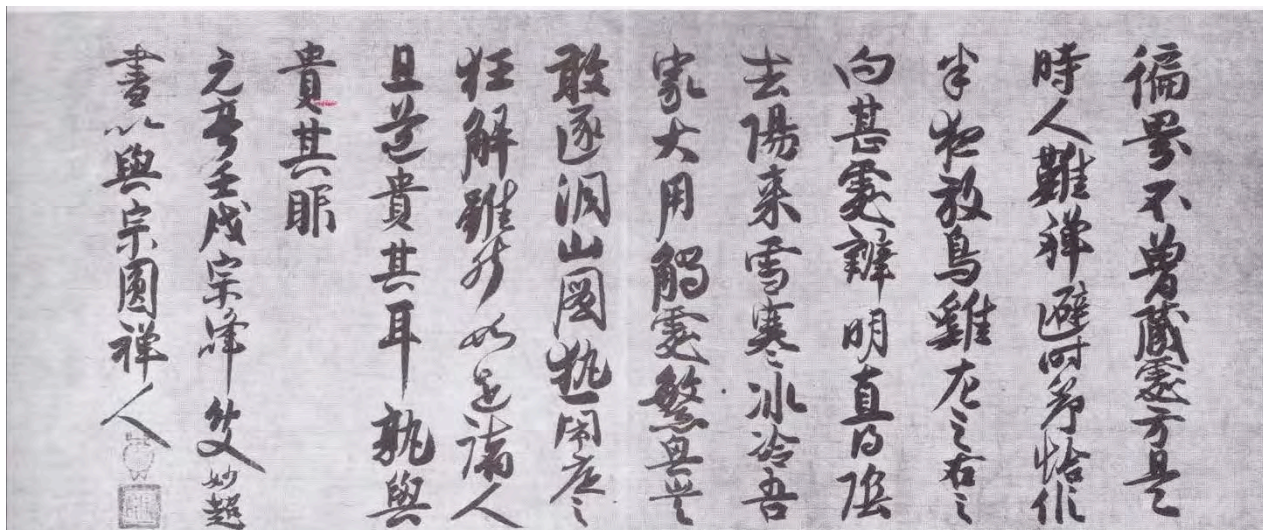 徧界不曾藏處方是
時人難避時節恰似
半夜放烏雞左之右之
向甚處辨明直得陰
去陽来雪寒冰冷吾
家大用觸處繁興豈
敢逐山閙之
狂解雖然如是諸人
且道貴其耳孰與
貴其眼
元亨壬戌宗峰叟妙超
書以與宗圓禅人